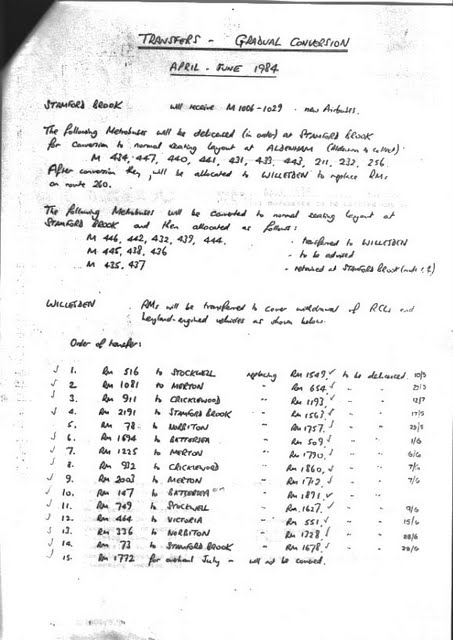 TRANSFERS - GRADUAL CONVERSION
APRIL - JUNE 1984
STAMFORD BROOK will receive M1006-1029 - new Airbuses.
The following Metrobuses will be delicensed (in order) at STAMFORD BROOK
for conversion to normal seating layout at ALDENHAM (Aldenham to collect)
M 434, 447, 440, 441, 431, 433, 443, 211, 232, 256.
After conversion they will be allocated to WILLESDEN to replace RMs
on route 260.
The following Metrobuses will be converted to normal seating layout at
STAMFORD BROOK and then allocated as follows:
M 446, 442, 432, 439, 444. - transferred to WILLESDEN
M 445, 438, 436 - to be advised
M 435, 437 - retained at STAMFORD BROOK
WILLESDEN RMs will be transferred to cover withdrawal of RCLs and
Leyland-engined vehicles as shown below.
Order of transfer:
✓ 1. RM 516 to STOCKWELL replacing RM 1549 ✓ to be delicensed 10/5
✓ 2. RM 1081 to MERTON " RM 654 ✓ " "
✓ 3. RM 911 to CRICKLEWOOD " RM 1193 ✓ " "
✓ 4. RM 2191 to STAMFORD BROOK " RM 1563 ✓ " " 17/5
5. RM 78 to NORBITON " RM 1757 ✓ " "
✓ 6. RM 1694 to BATTERSEA " RM 509 ✓ " " 1/6
✓ 7. RM 1225 to MERTON " RM 1790 ✓ " " 6/6
✓ 8. RM 932 to CRICKLEWOOD " RM 1860 ✓ " " 7/6
✓ 9. RM 2003 to MERTON " RM 1712 ✓ " " 7/6
✓ 10. RM 147 to BATTERSEA " RM 1871 ✓ " "
✓ 11. RM 749 to STOCKWELL " RM 1627 ✓ " " 9/6
✓ 12. RM 464 to VICTORIA " RM 551 ✓ " " 15/6
✓ 13. RM 336 to NORBITON " RM 1328 ✓ " "
✓ 14. RM 73 to STAMFORD BROOK " RM 1678 ✓ " "
✓ 15. RM 1772 for overhaul July - will not be covered.